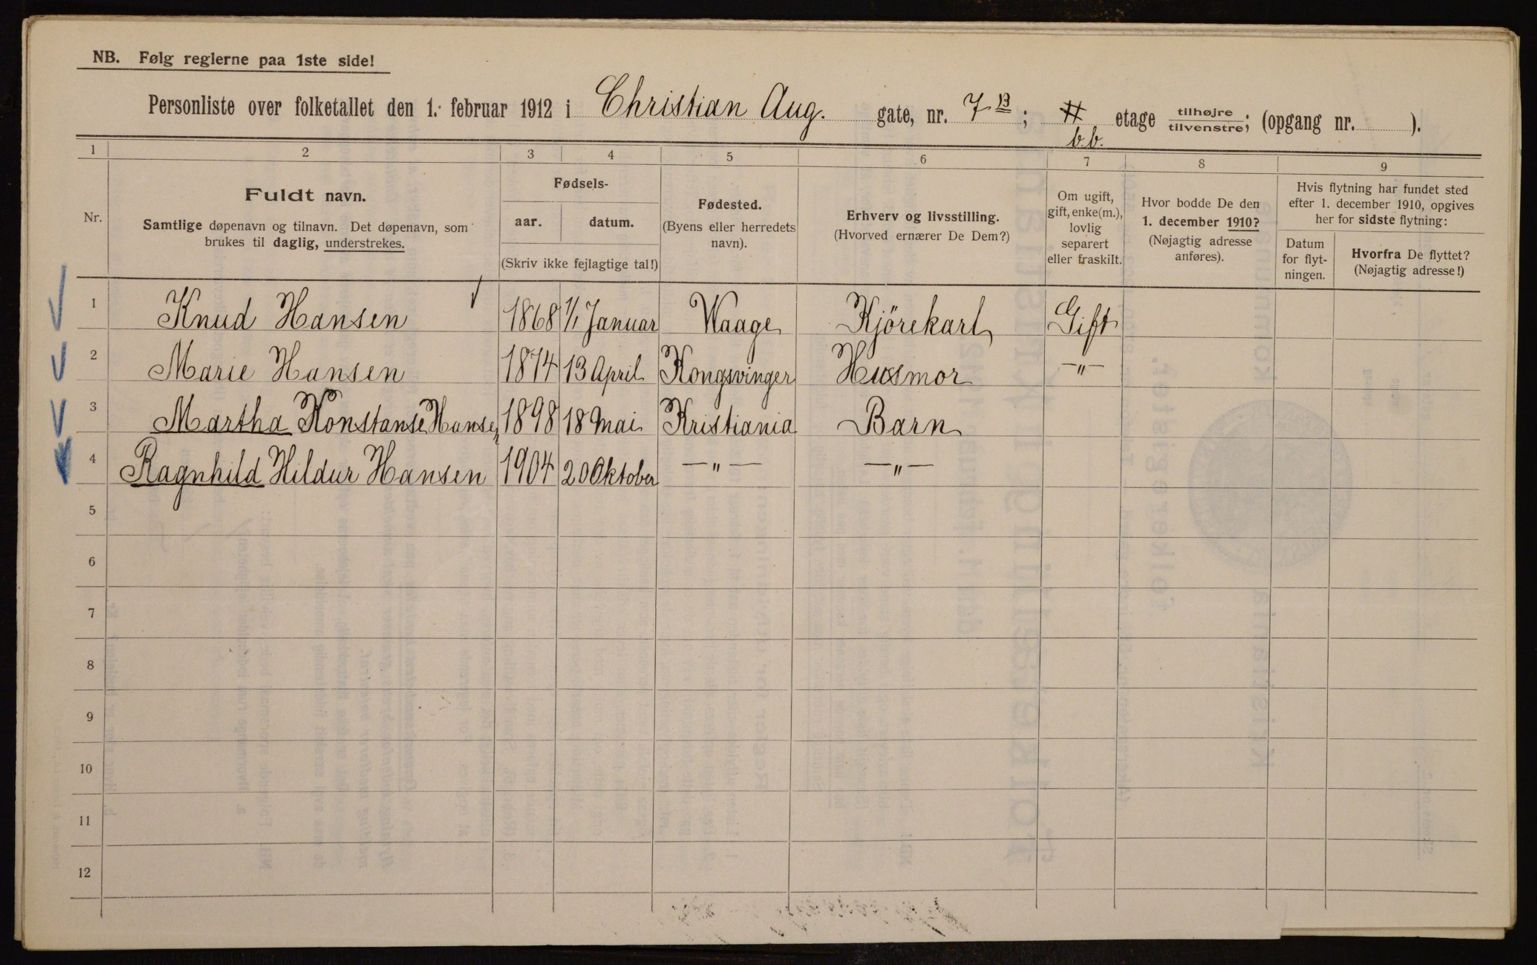 NB. Følg reglerne paa 1ste side!
Personliste over folketallet den 1. februar 1912 i Christian Aug. gate, nr. 7 B; # etage tilhøjre / tilvenstre; (opgang nr. ).
b.b.
1 2 3 4 5 6 7 8 9
Nr.
Fuldt navn.
Samtlige døpenavn og tilnavn. Det døpenavn, som
brukes til daglig, understrekes.
Fødsels-
aar. datum.
(Skriv ikke fejlagtige tal!)
Fødested.
(Byens eller herredets
navn).
Erhverv og livsstilling.
(Hvorved ernærer De Dem?)
Om ugift,
gift, enke(m.),
lovlig
separert
eller fraskilt.
Hvor bodde De den
1. december 1910?
(Nøjagtig adresse
anføres).
Hvis flytning har fundet sted
efter 1. december 1910, opgives
her for sidste flytning:
Datum
for flyt-
ningen.
Hvorfra De flyttet?
(Nøjagtig adresse!)
1 Knud Hansen 1868 1/1 Januar Waage Kjörekarl Gift
2 Marie Hansen 1874 13 April Kongsvinger Husmor —"—
3 Martha Konstanse Hansen 1898 18 Mai Kristiania Barn
4 Ragnhild Hildur Hansen 1904 20 Oktober —"— —"—
5
6
7
8
9
10
11
12